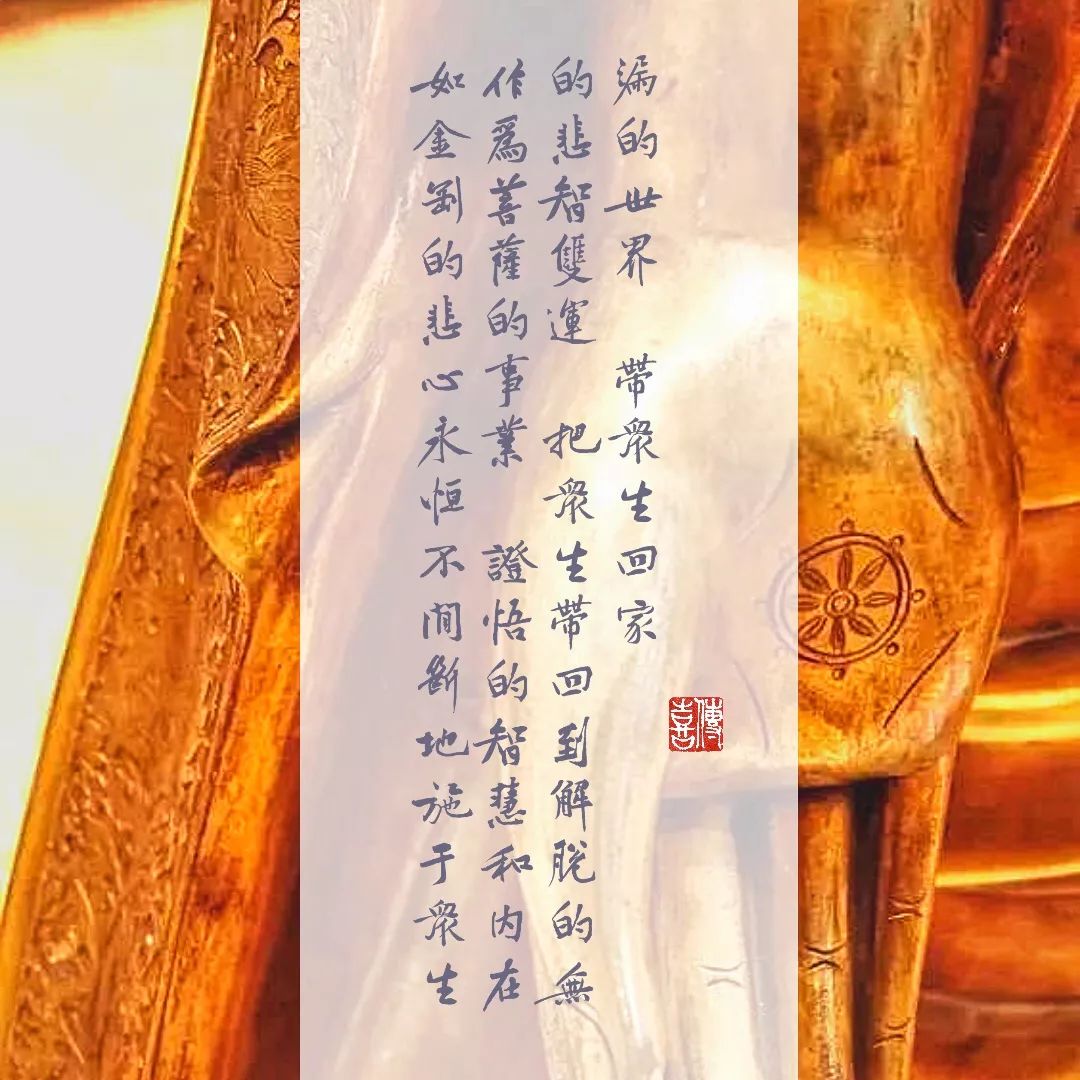 如金剛的悲心永恒不間斷地施于衆生
作爲菩薩的事業 證悟的智慧和内在
的悲智雙運 把衆生帶回到解脱的無
漏的世界 帶衆生回家
傳喜